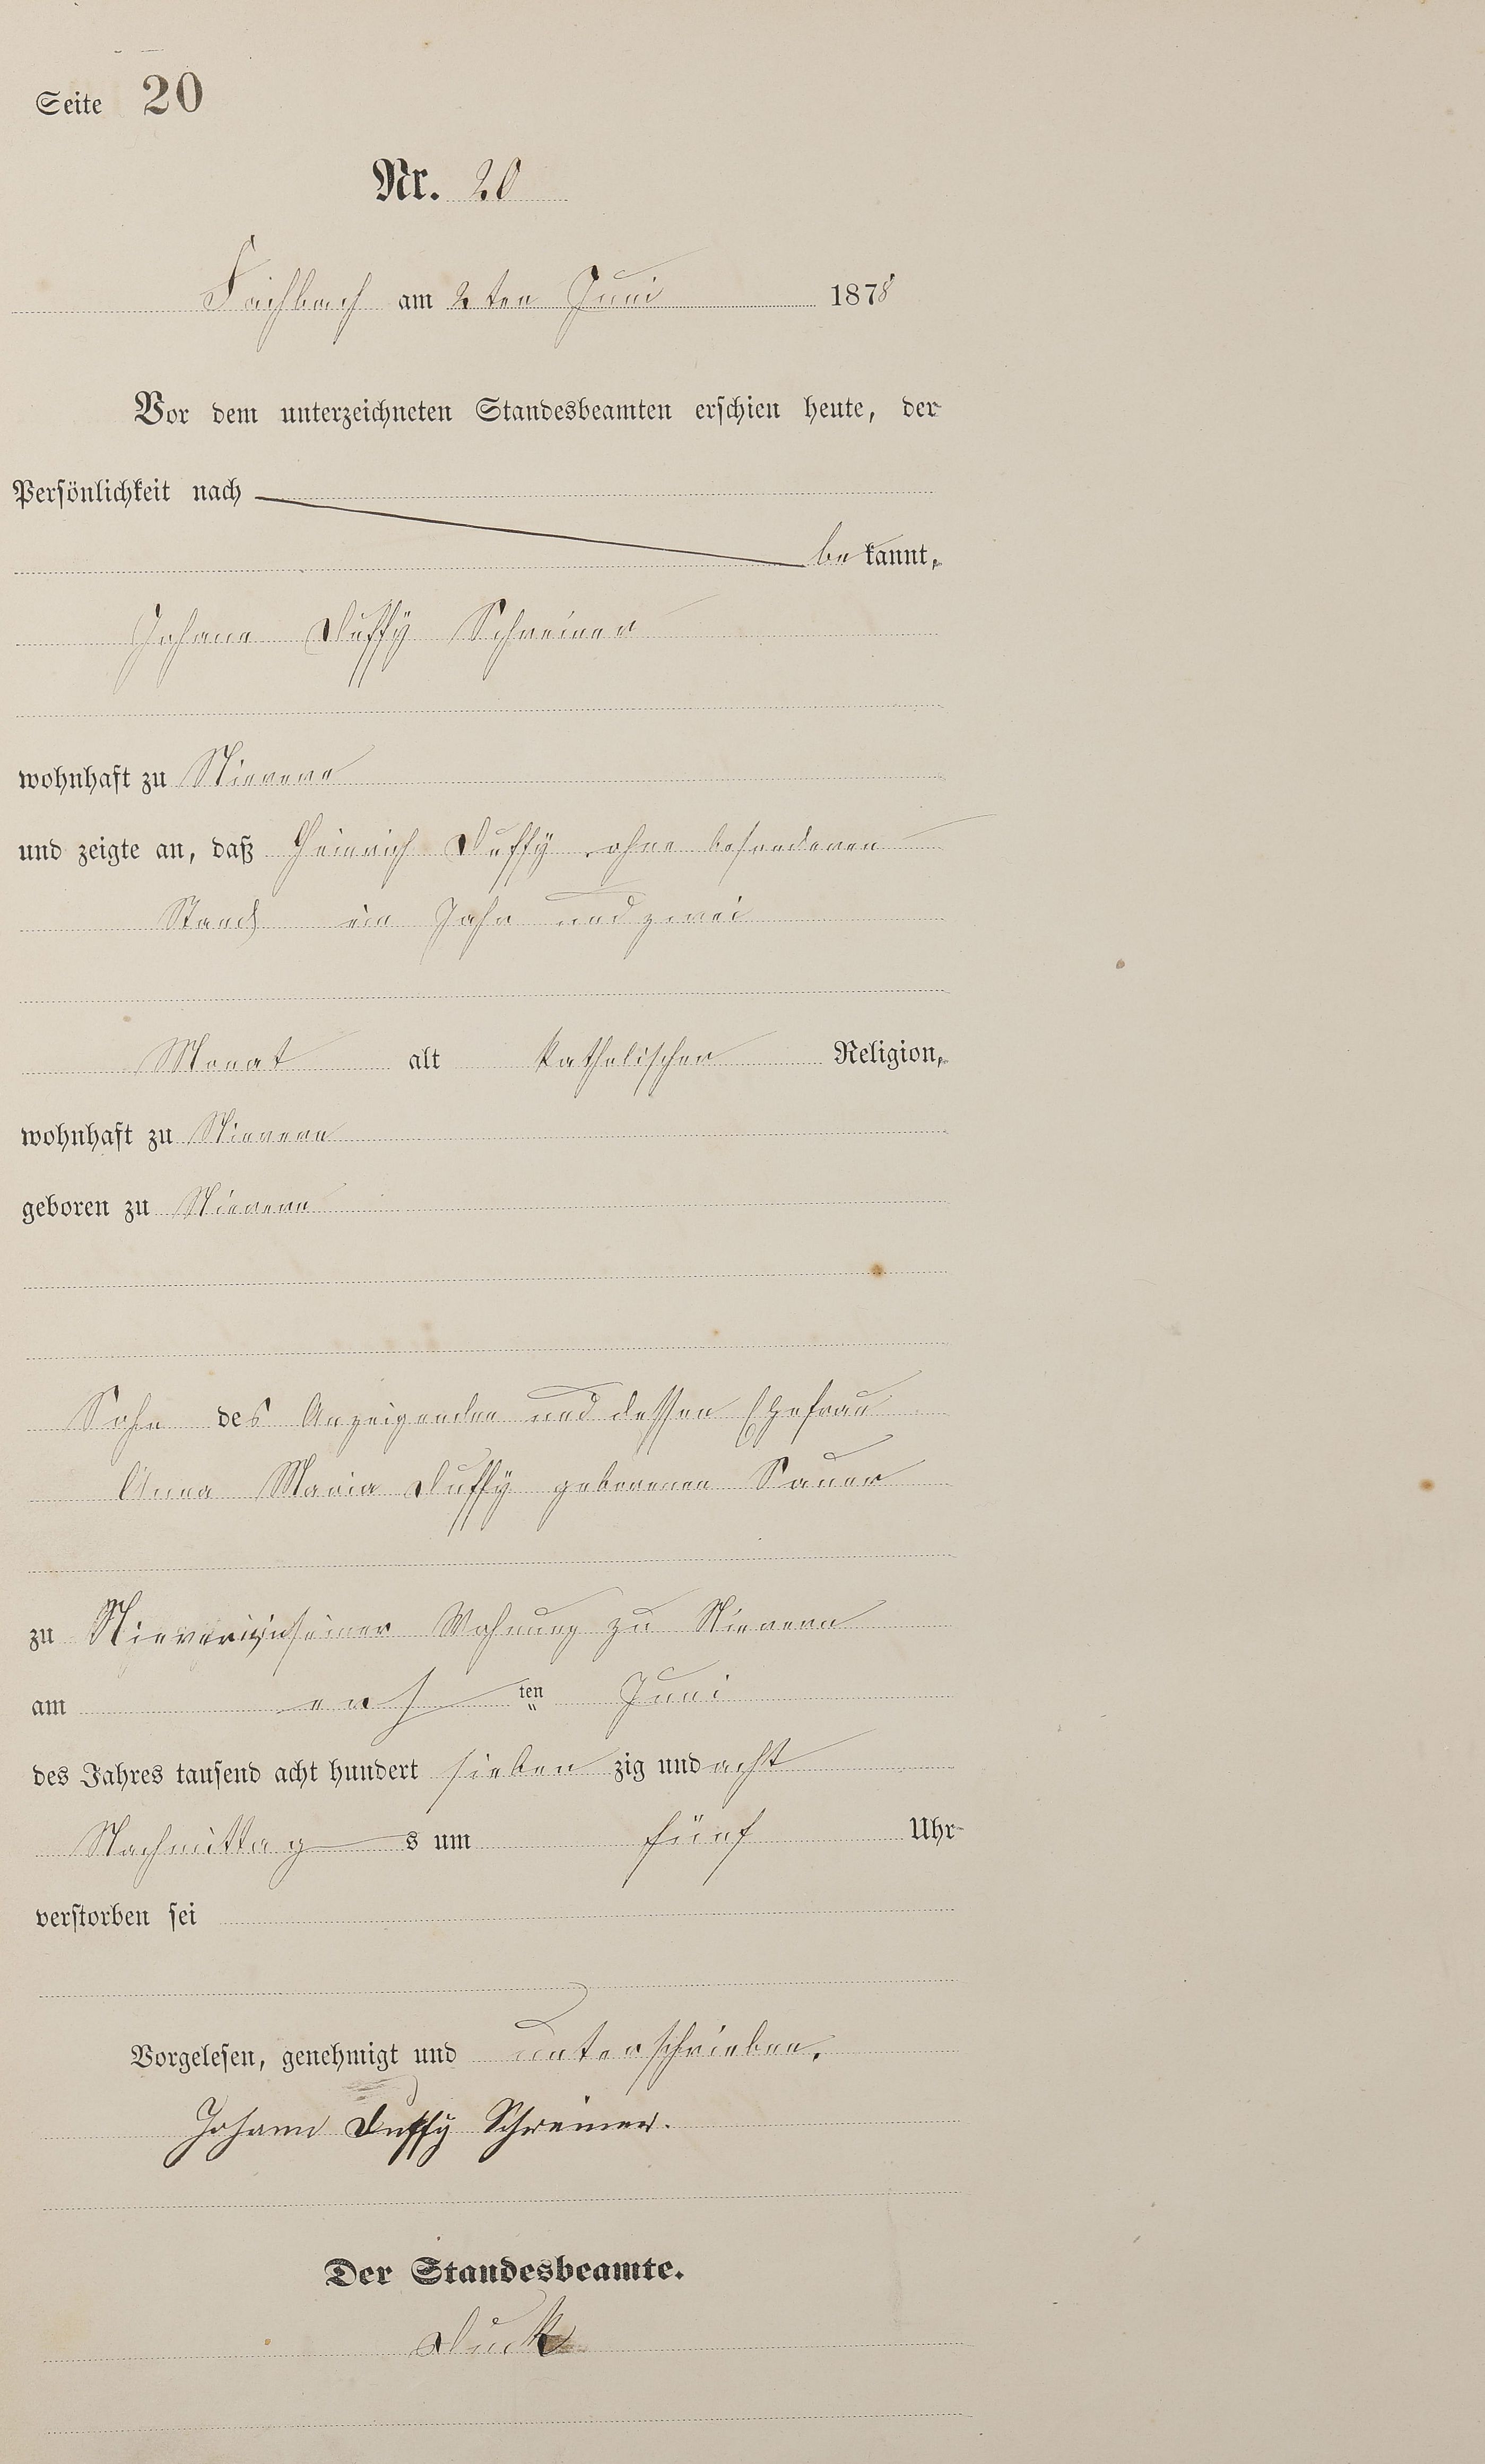 Seite 20
Nr. 20
Fachbach am 2 ten Juni 1878
Vor dem unterzeichneten Standesbeamten erschien heute, der
Persönlichkeit nach
be kannt,
Johann Duffÿ Schreiner
wohnhaft zu Nievern
und zeigte an, daß Heinrich Duffÿ ohne besonderen
Stand ein Jahr und zwei
Monat alt katholischer Religion,
wohnhaft zu Nievern
geboren zu Nievern
Sohn des Anzeigenden und dessen Ehefrau
Anna Maria Duffÿ geborenen Sauer
zu Nievern in seiner Wohnung zu Nievern
am ers ten Juni
des Jahres tausend acht hundert sieben zig und acht
Nachmittag s um fünf Uhr
verstorben sei
Vorgelesen, genehmigt und unterschrieben.
Johann Duffÿ Schreiner.
Der Standesbeamte.
Duck